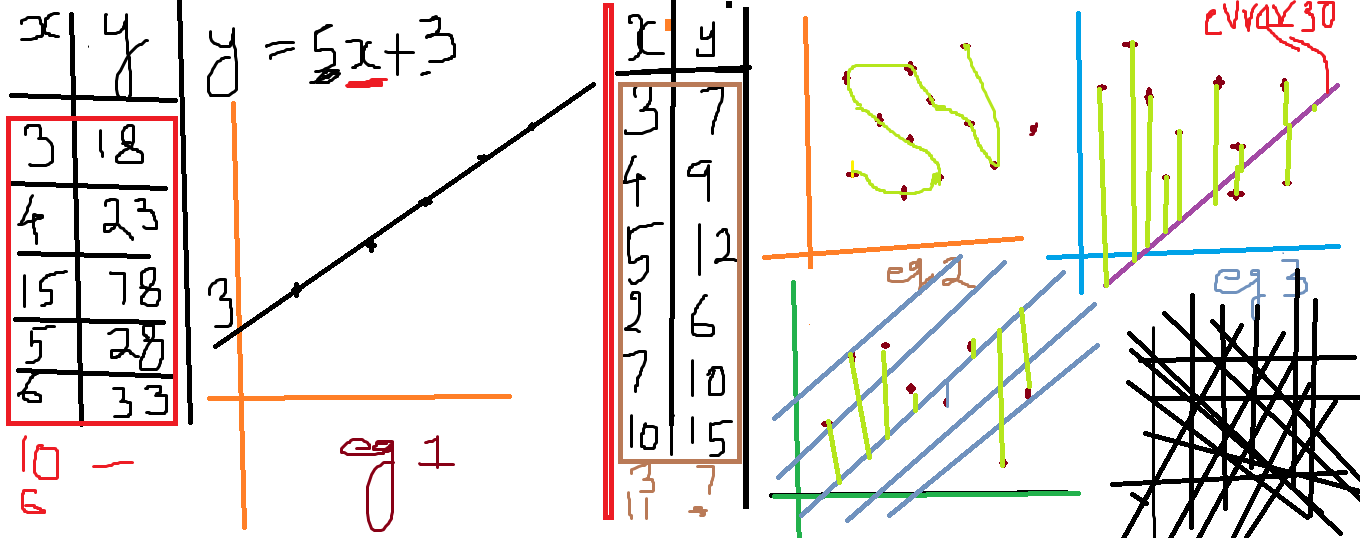 x y
3 18
4 23
15 78
5 28
6 33
10 –
6
y = 5x+3
3
eg 1
x y
3 7
4 9
5 12
2 6
7 10
10 15
3 7
11 -
eg 2
error 30
eg 3